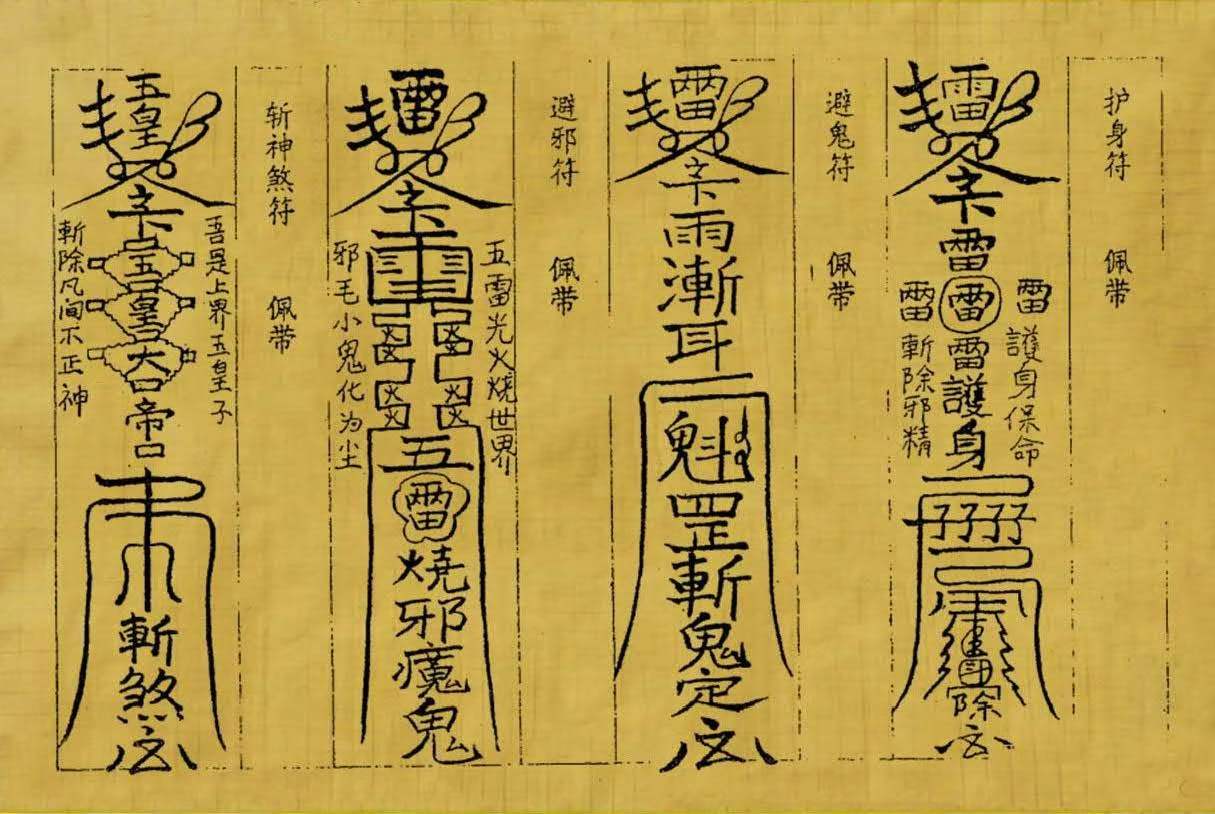 护身符
佩带
雷
雷
雷
雷
護身
護身保命
斬除邪精
除
避鬼符
佩带
雨
漸
耳
魁
罡
斬
鬼
定
避邪符
佩带
五雷光火燒世界
邪毛小鬼化为尘
五
燒
邪
魔
鬼
斩神煞符
佩带
五皇
吾是上界五皇子
斬除凡间不正神
五
皇
大
帝
斬
煞